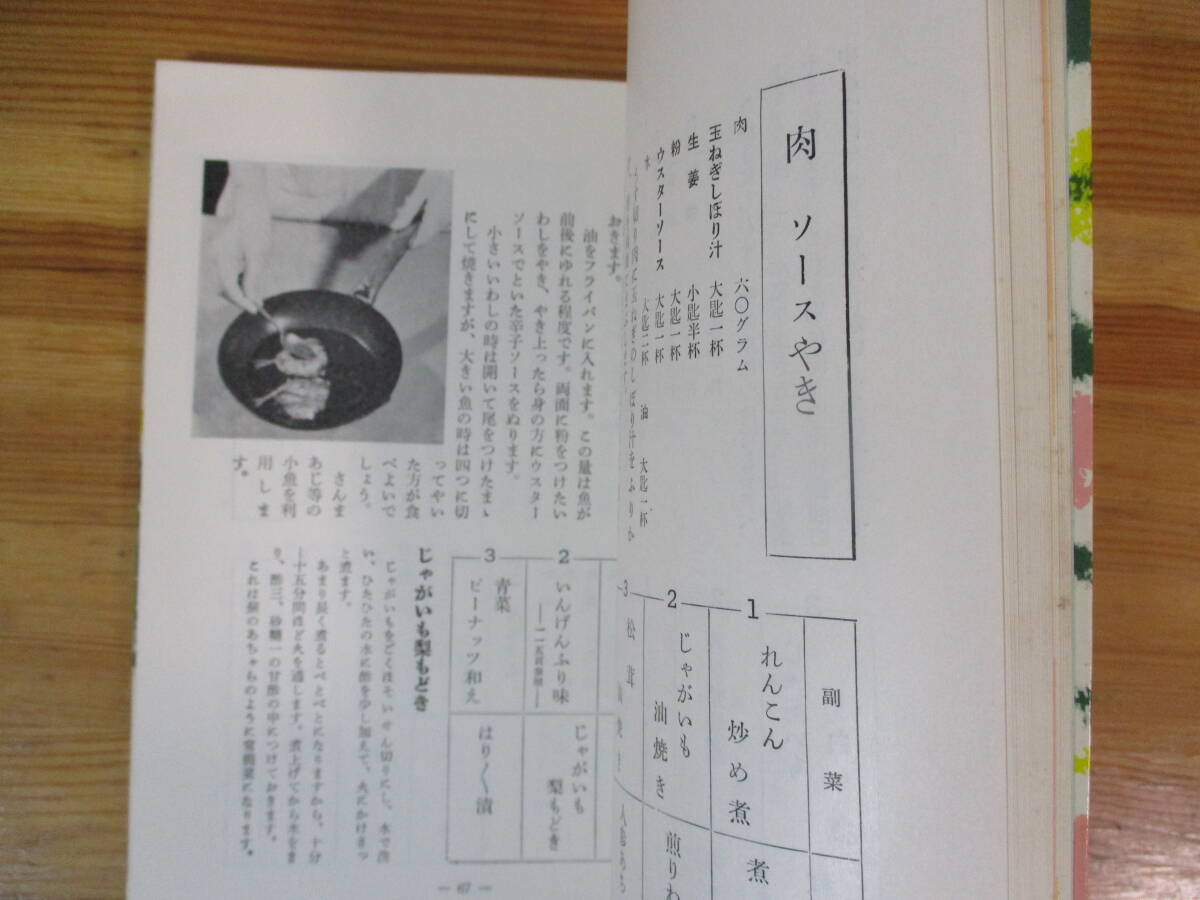 肉 ソースやき
肉 六〇グラム
玉ねぎしぼり汁 大匙一杯
生姜 小匙半杯
粉 大匙一杯
ウスターソース 大匙一杯
水 大匙二杯
油 大匙一杯
副菜
1
れんこん
炒め煮
煮
2
じゃがいも
油焼き
煎りわ
3
松茸
おきます。
油をフライパンに入れます。この量は魚が
前後にゆれる程度です。両面に粉をつけたい
わしをやき、やき上ったら身の方にウスター
ソースでといた辛子ソースをぬります。
小さいいわしの時は開いて尾をつけたまゝ
にして焼きますが、大きい魚の時は四つに切
ってやい
た方が食
べよいで
しょう。
さんま
あじ等の
小魚を利
用しま
す。
2
いんげんふり味
じゃがいも
梨もどき
3
青菜
ピーナッツ和え
はりく漬
じゃがいも梨もどき
じゃがいもをごくほそいせん切りにし、水で洗
い、ひたひたの水に酢を少し加えて、火にかけさっ
と煮ます。
あまり長く煮るとべとべとになりますから、十分
—十五分間ほど火を通します。煮上げてから水をき
り、酢三、砂糖一の甘酢の中につけておきます。
これは蕪のあちゃらのように常備菜になります。
— 67 —